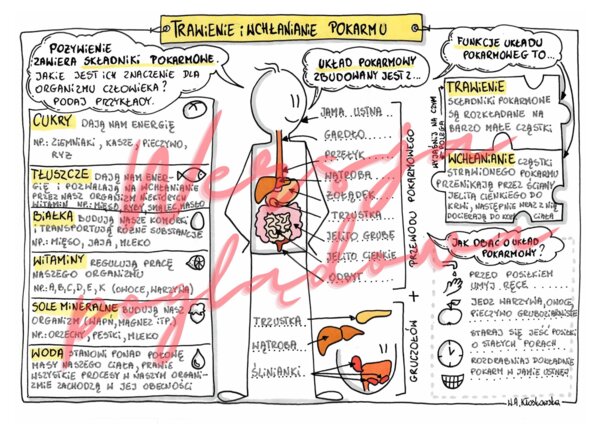 TRAWIENIE I WCHŁANIANIE POKARMU
POŻYWIENIE
ZAWIERA SKŁADNIKI POKARMOWE.
JAKIE JEST ICH ZNACZENIE DLA
ORGANIZMU CZŁOWIEKA?
PODAJ PRZYKŁADY.
CUKRY DAJĄ NAM ENERGIĘ
NP.: ZIEMNIAKI, KASZE, PIECZYWO,
RYŻ
TŁUSZCZE DAJĄ NAM ENER-
GIĘ I POZWALAJĄ NA WCHŁANIANIE
PRZEZ NASZ ORGANIZM NIEKTÓRYCH
WITAMIN NP.: MIĘSO, RYBY, SMALEC, MASŁO
BIAŁKA BUDUJĄ NASZE KOMÓRKI
I TRANSPORTUJĄ RÓŻNE SUBSTANCJE
NP.: MIĘSO, JAJA, MLEKO
WITAMINY REGULUJĄ PRACĘ
NASZEGO ORGANIZMU
NP.: A, B, C, D, E, K (OWOCE, WARZYWA)
SOLE MINERALNE BUDUJĄ NASZ
ORGANIZM (WAPŃ, MAGNEZ ITP.)
NP.: ORZECHY, PESTKI, MLEKO
WODA STANOWI PONAD POŁOWĘ
MASY NASZEGO CIAŁA, PRAWIE
WSZYSTKIE PROCESY W NASZYM ORGANI-
ZMIE ZACHODZĄ W JEJ OBECNOŚCI
UKŁAD POKARMOWY
ZBUDOWANY JEST Z...
JAMA USTNA
GARDŁO
PRZEŁYK
WĄTROBA
ŻOŁĄDEK
TRZUSTKA
JELITO GRUBE
JELITO CIENKIE
ODBYT
PRZEWODU POKARMOWEGO
+
GRUCZOŁÓW
TRZUSTKA
WĄTROBA
ŚLINIANKI
FUNKCJE UKŁADU
POKARMOWEG TO...
WYJAŚNIJ NA CZYM
POLEGA
TRAWIENIE
SKŁADNIKI POKARMOWE
SĄ ROZKŁADANE NA
BARZO MAŁE CZĄSTKI
WCHŁANIANIE CZĄSTKI
STRAWIONEGO POKARMU
PRZENIKAJĄ PRZEZ ŚCIANY
JELITA CIENKIEGO DO
KRWI, NASTĘPNIE WRAZ Z NIĄ
DOCIERAJĄ DO KOM. CIAŁA
JAK DBAĆ O UKŁAD
POKARMOWY?
PRZED POSIŁKIEM
UMYJ RĘCE
JEDZ WARZYWA, OWOCE,
PIECZYWO GRUBOZIARNISTE
STARAJ SIĘ JEŚĆ POSIŁKI
O STAŁYCH PORACH
ROZDRABNIAJ DOKŁADNIE
POKARM W JAMIE USTNEJ
Wersja
poglądowa